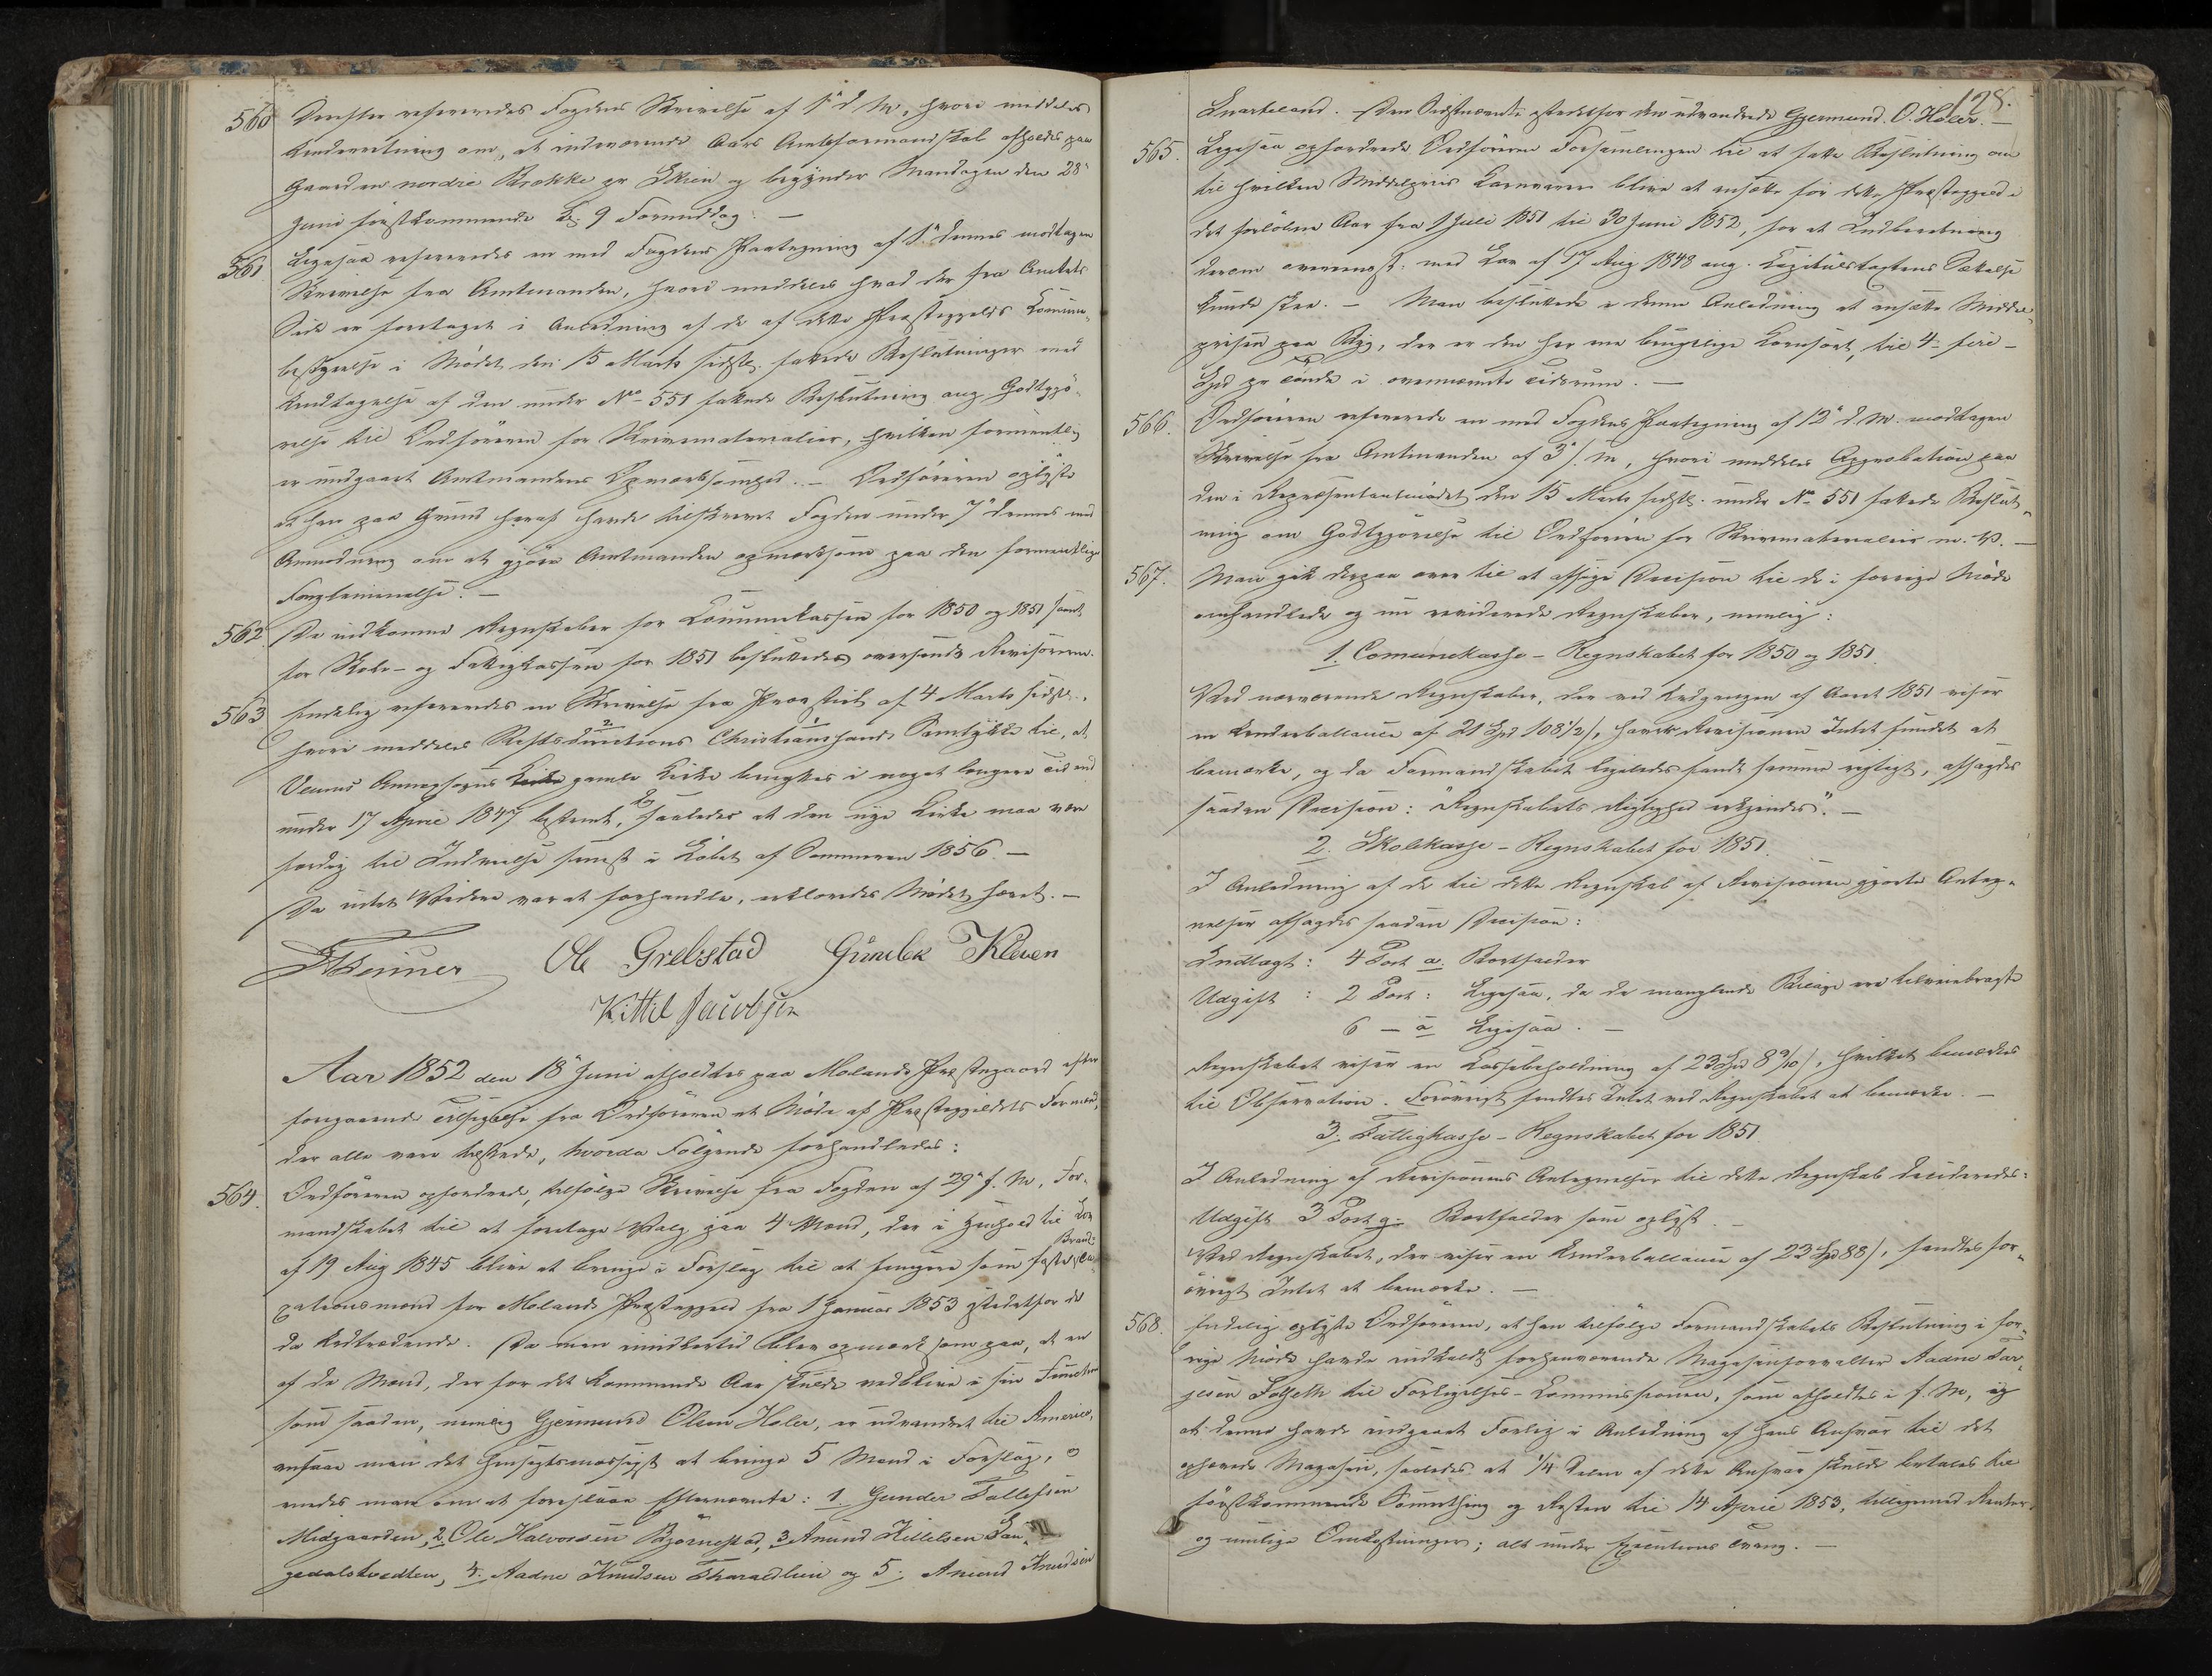 560 Derefter refereredes Fogdens Skrivelse af 5te d. M., hvori meddeles
Underretning om, at indeværende Aars Amtsformandskab afholdes paa
Gaarden nordre Brække pr Skien og begynder Mandagen den 28de
Juni förstkommende Kl. 9 Formiddag. —
561 Ligesaa refereredes en med Fogdens Paategning af 5te dennes modtagen
Skrivelse fra Amtmanden, hvori meddeles hvad der fra Amtets
Side er foretaget i Anledning af de af dette Præstegjelds Commune-
bestyrelse i Mödet den 15 Marts sidstl. fattede Beslutninger med
Undtagelse af den under No 551 fattede Beslutning ang. Godtgjö-
relse til Ordföreren for Skrivematerialier, hvilken formentlig
er undgaaet Amtmandens Opmærksomhed. — Ordföreren oplyste
at han paa Grund heraf havde tilskrevet Fogden under 7de dennes med
Anmodning om at gjöre Amtmanden opmærksom paa den formentlige
Forglemmelse. —
562. De indkomne Regnskaber for Communekassen for 1850 og 1851 samt
for Skole- og Fattigkassen for 1851 besluttedes oversendte Revisoren.
563 Endelig refereredes en Skrivelse fra Provstiet af 4 Marts sidstl.,
hvori meddeles Stiftsdirectionens Christiansands Samtykke til, at
Veums Annexsogns gamle Kirke benyttes i noget længere Tid end
under 17 April 1847 bestemt, saaledes at den nye Kirke maa være
færdig til Indvielse senest i Löbet af Sommeren 1856. —
Da intet Videre var at forhandle, erklæredes Mödet hævet. —
Ole Grebstad Gunlek Kleven
Kittil Jacobsen
Aar 1852 den 18de Juni afholdtes paa Molands Præstegaard efter
foregaaende Tilsigelse fra Ordföreren et Möde af Præstegjeldets Formænd,
der alle vare tilstede, hvorda Fölgende forhandledes:
564. Ordföreren opfordrede, tilfölge Skrivelse fra Fogden af 29de f. M., For-
mandskabet til at foretage Valg paa 4 Mænd, der i Henhold til Lov
af 19 Aug 1845 blive at bringe i Forslag til at fungere som faste Brand-
taxationsmænd for Molands Præstegjeld fra 1 Januar 1853 istedetfor de
da Udtrædende. Da man imidlertid blev opmærksom paa, at en
af de Mænd, der for det kommende Aar skulde vedblive i sin Function
som saadan, nemlig Gjermund Olsen Höler, er udvandret til America,
ansaae man det hensigtsmæssigst at bringe 5 Mænd i Forslag, og
enedes man om at foreslaae Efternævnte: 1. Gunder Tallefsen
Midgaarden, 2. Ole Halvorsen Björnestad, 3 Amund Killelsen Lau-
gedalstvedten, 4. Aadne Knudsen Tharaldlien og 5. Amund Knudsen
128.
Svarteland. Den Sidstnævnte istedetfor den udvandrede Gjermund. O. Höler. —
565. Ligesaa opfordrede Ordföreren Forsamlingen til at fatte Beslutning om
til hvilken Middelpriis Kornvarer blive at ansætte for dette Præstegjeld i
det forlöbne Aar fra 1 Juli 1851 til 30 Juni 1852, for at Indberetning
derom overeensst. med Lov af 17 Aug 1848 ang. Capitelstaxtens Sættelse
kunde skee. — Man besluttede i denne Anledning at ansætte Middel-
prisen paa Byg, der er den her ene brugelige Kornsort, til 4 — fire —
Spd pr Tönde i ovennævnte Tidsrum. —
566. Ordföreren refererede en med Fogdens Paategning af 12te d. M. modtagen
Skrivelse fra Amtmanden af 3de s. M., hvori meddeles Approbation paa
den i Repræsentantmödet den 15 Marts sidstl. under No 551 fattede Beslut-
ning om Godtgjörelse til Ordföreren for Skrivematerialier m. V. —
567. Man gik derpaa over til at afsige Decision til de i forrige Möde
omhandlede og nu reviderede Regnskaber, nemlig:
1. Comunekasse – Regnskabet for 1850 og 1851.
Ved nærværende Regnskaber, der ved Udgangen af Aaret 1851 viser
en Underballance af 21 Spd 108½ s, havde Revisionen Intet fundet at
bemærke, og da Formandskabet ligeledes fandt samme rigtigt, afsagdes
saadan Decision: "Regnskabets Rigtighed erkjendes". —
2. Skolekasse – Regnskabet for 1851.
I Anledning af de til dette Regnskab af Revisionen gjorte Anteg-
nelser afsagdes saadan Decision:
Indtægt: 4 Post a. Bortfalder
Udgift : 2 Post: Ligesaa, da de manglende Bilage ere tilveiebragte
6 — a Ligesaa. —
Regnskabet viser en Cassebeholdning af 23 Spd 8 s, hvilket bemærkes
til Observation. Forövrigt fandtes Intet ved Regnskabet at bemærke. —
3. Fattigkasse – Regnskabet for 1851
I Anledning af Revisionens Antegnelser til dette Regnskab decideredes:
Udgift 3 Post g. Bortfalder som oplyst. —
Ved Regnskabet, der viser en Underballance af 23 Spd 88 s, fandtes for-
övrigt Intet at bemærke. —
568. Endelig oplyste Ordföreren, at han tilfölge Formandskabets Beslutning i for-
rige Möde havde indkaldt forhenværende Magasinforvalter Aadne Tar-
jesen Tofseth til Forligelses-Commissionen, som afholdtes i f. M., og
at denne havde indgaaet Forlig i Anledning af hans Ansvar til det
ophævede Magasin, saaledes at 1/4 Delen af dette Ansvar skulde betales til
förstkommende Sommerthing og Resten til 14 April 1853, tilligemed Renter
og mulige Omkostninger; alt under Executions Tvang. —